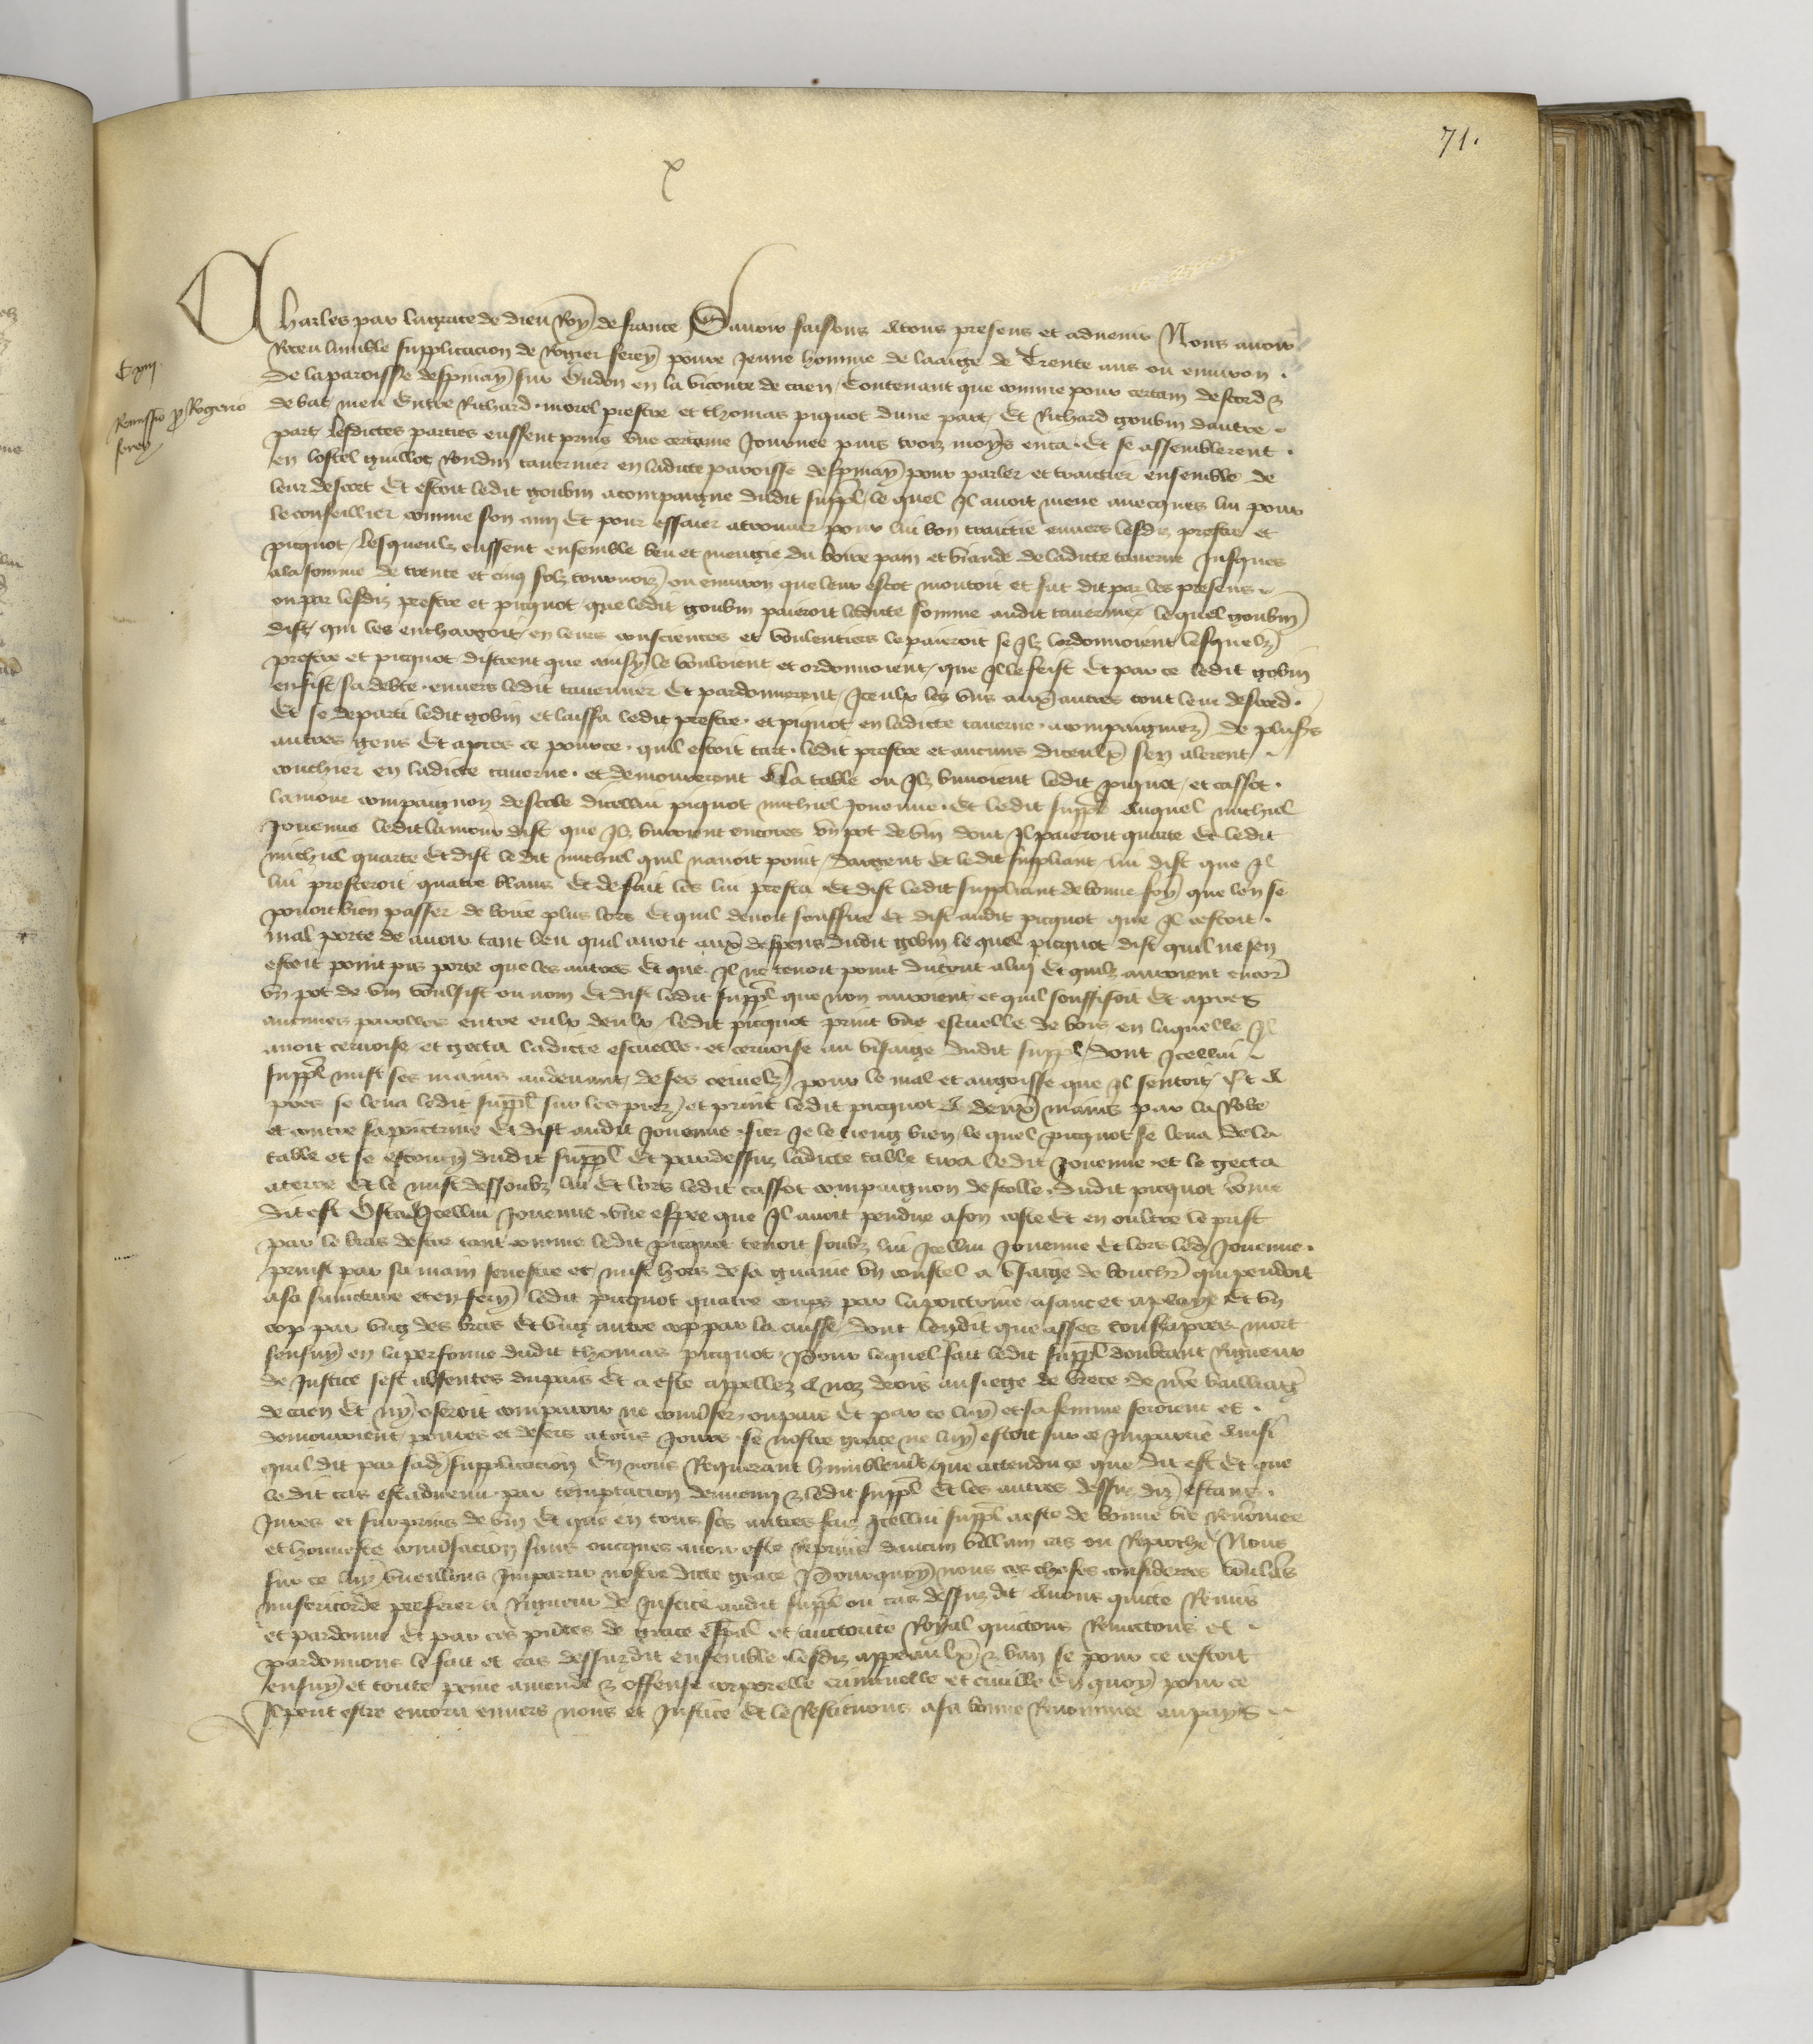 71.
x
Charles par la grace de dieu Roy de france Savoir faisons A tous presens et advenir Nous avoir
Receu lumble supplicacion de Rogier ferey povre Jeune homme de laaige de Trente ans ou environ .
C xiiij.
De la paroisse despinay sur Oudon en la viconte de caen / Contenant que comme pour certain descord &
Remissio p Rogerio
ferey
debat meu Entre Richard morel prestre et thomas piquot dune part / Et Richard goubin dautre .
part / lesdictes parties eussent prins une certaine Journee puis trois moys enca . Et se assemblerent .
en lostel guillot Rondin tavernier en ladicte paroisse despinay pour parler et traictier ensemble de
leur descort Et estoit ledit goubin acompaigne dudit suppl / le quel Il avoit mene avecques lui pour
le conseillier comme son amy Et pour essaier a trouver pour lui bon traictie envers lesdiz prestre et
picquot / lesqueulz eussent ensemble beu et mengie du boire pain et viande de ladicte taverne Jusques
a la somme de trente et cinq solz tournois ou environ que leur escot montoit et fut dit par les presens .
ou par lesdiz prestre et picquot que ledit goubin paieroit ledicte somme audit tavernier lequel goubin
dist / qui les enchargoit en leurs consciences et voulentiers le paieroit se Ilz lordonnoient lesquelz
prestre et picquot distrent que ainsy le vouloient et ordonnoient / que Il le feist Et par ce ledit gobin
en fist sa debte . envers ledit tavernier Et pardonnerent / Iceulx les uns aux autres tout leur descord .
Et se departi ledit gobin et laissa ledit prestre . et piquot en ledicte taverne . acompaignez de plusrs
autres gens Et apres ce pource . quil estoit tart . ledit prestre et aucuns diceulx sen alerent .
couchier en ladicte taverne . et demourerent A la table ou Ilz buvoient ledit piquot / et cassot .
lamour compaignon descole dicellui piquot michiel Jouenne . Et ledit suppl Auquel michiel
Jouenne ledit lamour dist que Ilz buroient encores un pot de vin dont Il paieroit quarte Et ledit
michiel quarte Et dist ledit michiel quil navoit point / dargent Et ledit supliant lui dist que Il
lui presteroit quatre blans Et de fait les lui presta Et dist ledit suppliant de bonne foy que len se
povoit bien passer de boire plus lors Et quil devoit souffire Et dist audit picquot que Il cestoit .
mal porte de avoir tant beu quil avoit aux despens dudit gobin le quel picquot dist quil ne sen
estoit point pis porte que les autres Et que Il ne tenoit point du tout a luy Et quilz auroient encor
un pot de vin voulsist ou nom Et dist ledit suppl que non auroient et quil souffisoit Et apres
aucunes parolles entre eulx deulx / ledit picquot print une escuelle de bois en laquelle Il
avoit cervoise et gecta ladicte escuelle . et cervoise au visaige dudit suppl / dont Icellui .
suppl mist ses mains audevant / de ses oeieulz pour le mal et angoisse que Il sentoit / Et A
pres se leva ledit suppl sur les piez / et print ledit picquot A deux mains par la Robe
et contre sa poictrine Et dist audit Jouenne . fier Je le tieng bien / le quel picquot se leva de la
table et se escouy dudit suppl Et pardessuz ladicte table tira ledit Jouenne . et le gecta
a terre Et le mist dessoubz lui Et lors ledit cassot compaignon descolle . dudit picquot come
dit est Osta A Icellui Jouenne . une espee que Il avoit pendue a son coste Et en oultre le prist
par le bras destre tant comme ledit picquot tenoit soubz lui Icellui Jouenne Et lors led Jouenne .
prinst par sa main senestre et mist hors de sa guaine un coustel a usaige de bouchr qui pendoit
a sa saincture et en fery ledit picquot quatre coups par la poictrine a sanc et a playe Et un
cop par ung des bras Et ung autre cop par la cuisse / dont lendit que asses tost apres mort
sensuy en la personne dudit thomas picquot . Pour lequel fait ledit suppl doubtant Rigueur
de Justice sest absentes du pais Et a este appellez A noz drois au siege de vrece . de nre bailliage
de caen Et ny oseroit comparoir ne converser ou pais Et par ce luy et sa femme seroient et .
demourroient / povres et desers a tous Jours . se nostre grace ne luy estoit sur ce Impartie Ainsi
quil dit par sad supplicacion En nous Requerant humblement que attendu ce que dit est Et que
le dit cas est advenu . par temptacion dennemy & ledit suppl Et les autres dessus diz estans .
Jvres et surprins de vin Et que en tous ses autres faiz Icellui suppl a este de bonne vie Renomee
et honneste conversacion sans oncques avoir este reprins daucun villain cas ou Reproche Nous
sur ce luy vueillons Impartir nostre dicte grace Pourquoy nous ces choses considerees voulans
misericorde preferer a Rigueur de Justice audit suppl ou cas dessuz dit Avons quicte Remis
et pardonne Et par ces pntes de grace espal et auctorite Royal quictons Remectons et .
pardonnons le fait et cas dessuzdit ensemble . lesdiz appeaulx & ban se pour ce cestoit
ensuy et toute peine amende & offense corporelle criminelle et civille En quoy pour ce
Il peut estre encoru envers nous et Justice Et le Restituons a sa bonne Renommee au pays .